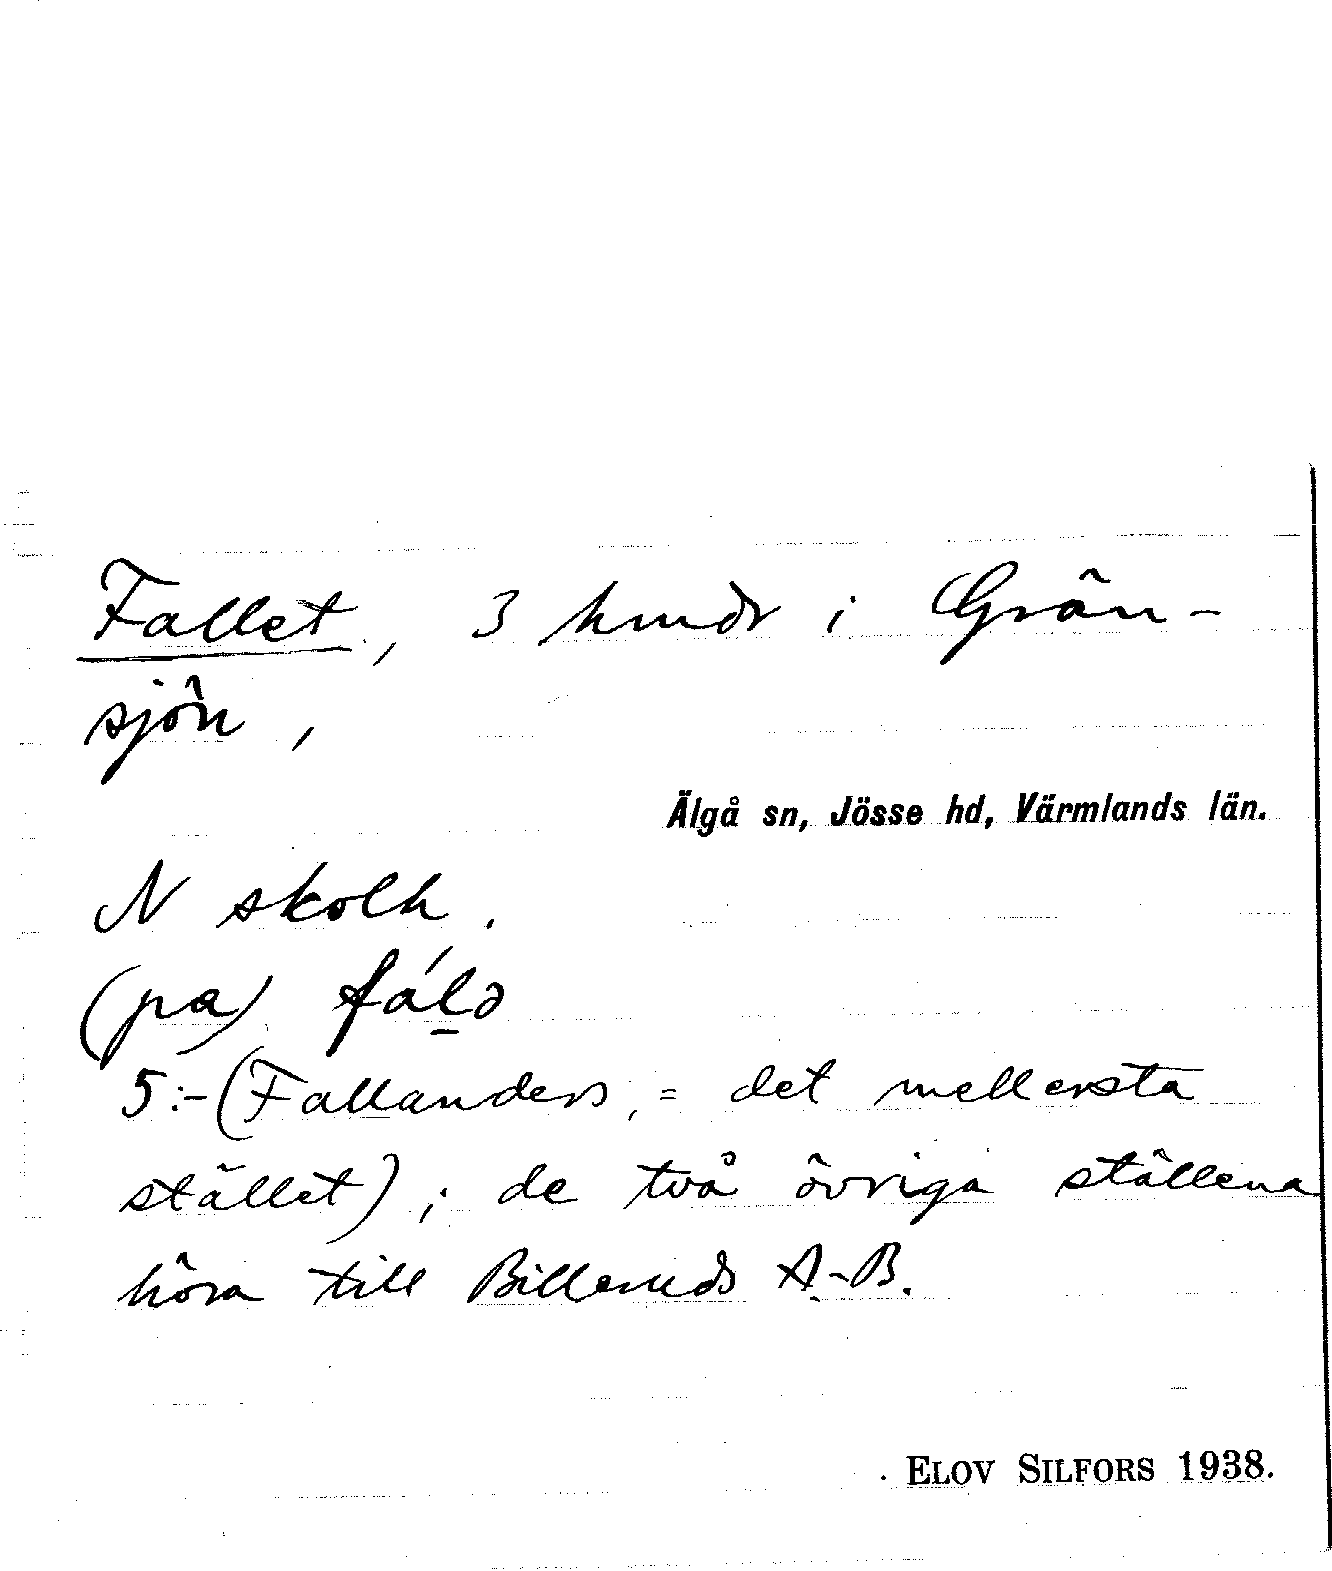 Fallet, 3 hmdr i Grän-
sjön,
Älgå sn, Jösse hd, Värmlands län.
N skolh.
(pa) fálə
5:-(Fallanders, = det mellersta
stället); de två övriga ställena
höra till Billeruds A-B.
ELOV SILFORS 1938.